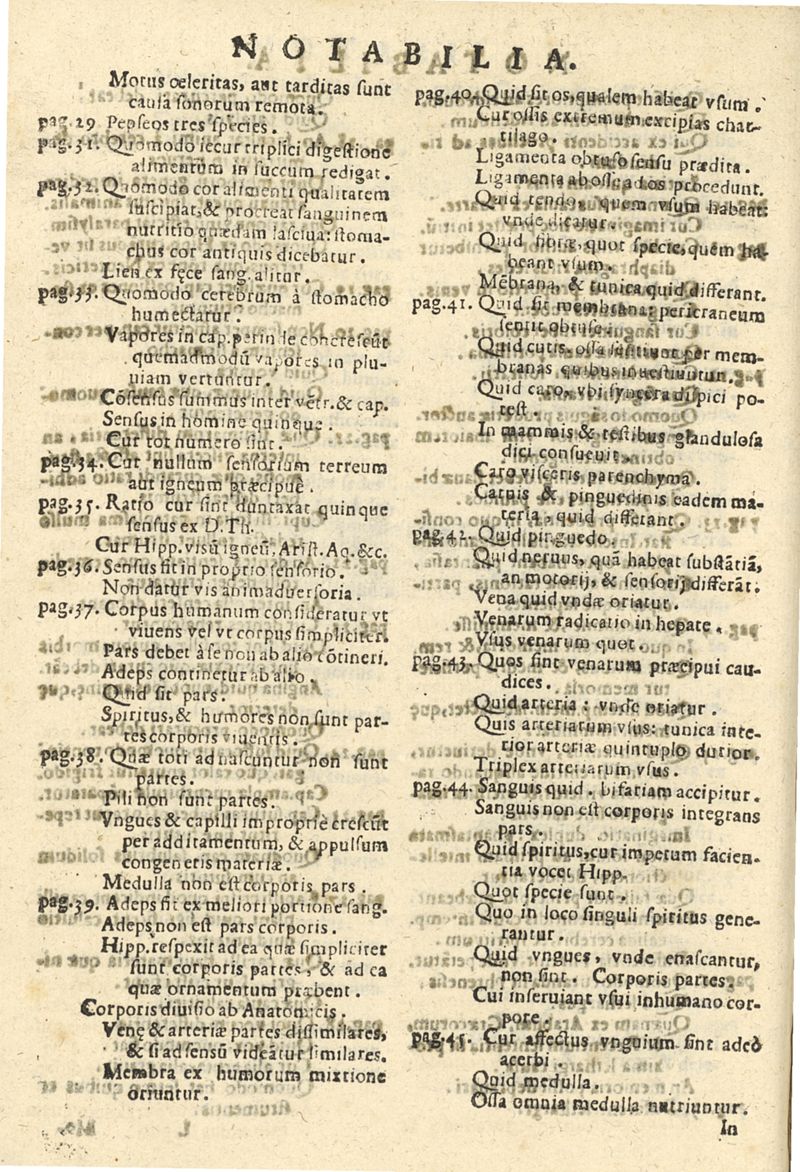 NOTABILIA.
Motus celeritas, aut tarditas sunt
causa sonorum remota.
pag.29 Pepseos tres species.
pag.31. Quomodo iecur triplici digestione
alimentum in succum redigat.
pag.32. Quomodo cor alimenti qualitatem
suscipiat, & procreat sanguinem
nutritio quædam lasciua: stoma-
chus cor antiquis dicebatur.
Lien ex fęce sang. alitur.
pag.33. Quomodo cerebrum à stomacho
humectatur.
Vapores in cap. perin le concrescūt
quemadmodū vapores in plu-
uiam vertuntur.
Cōsensus summus inter vētr. & cap.
Sensus in homine quinque.
Cur tot numero sint.
pag.34. Cur nullum sensorium terreum
aut igneum præcipuè.
pag.35. Ratio cur sint duntaxat quinque
sensus ex D. Th.
Cur Hipp. visū igneū, Arist. Aq. &c.
pag.36. Sensus fit in proprio sensorio.
Non datur vis animaduersoria.
pag.37. Corpus humanum consideratur vt
viuens vel vt corpus simpliciter.
Pars debet à se non ab alio cōtineri.
Adeps continetur ab alio.
Quid sit pars.
Spiritus, & humores non sunt par-
tes corporis viuentis.
pag.38. Quæ toti adnascuntur non sunt
partes.
Pili non sunt partes.
Vngues & capilli impropriè crescūt
per additamentum, & appulsum
congeneris materiæ.
Medulla non est corporis pars.
pag.39. Adeps fit ex meliori portione sang.
Adeps non est pars corporis.
Hipp. respexit ad ea quæ simpliciter
sunt corporis partes, & ad ea
quæ ornamentum præbent.
Corporis diuisio ab Anatomicis.
Venę & arteriæ partes dissimilares,
& si ad sensū videātur similares.
Membra ex humorum mixtione
oriuntur.
pag.40. Quid sit os, qualem habeat vsum.
Cur ossis extremum excipias char-
tilago.
Ligamenta obtuso sensu prædita.
Ligamenta ab ossę ad os procedunt.
Quid tendo, quem vsum habeat:
vnde dicatur.
Quid fibræ, quot specie, quem ha-
beant vsum.
Mēbrana, & tunica quid differant.
pag.41. Quid sit membrana: pericraneum
sentit obtusè.
Quid cutis, ossa sentiunt per mem-
branas quibus inuestiuntur.
Quid caro, vbi syncera dispici po-
test.
In mammis & testibus glandulosa
dici consueuit.
Caro visceris parenchyma.
Carnis & pinguedinis eadem ma-
teria, quid differant.
pag.42. Quid pinguedo.
Quid neruus, quā habeat substātiā,
an motorij, & sensorij differāt.
Vena quid vndæ oriatur.
Venarum radicatio in hepate.
Vsus venarum quot.
pag.43. Quos sint venarum præcipui cau-
dices.
Quid arteria: vnde oriatur.
Quis arteriarum vsus: tunica inte-
rior arteriæ quintuplo durior.
Triplex arteriarum vsus.
pag.44. Sanguis quid. bifariam accipitur.
Sanguis non est corporis integrans
pars.
Quid spiritus, cur impetum facien-
tia vocet Hipp.
Quot specie sunt.
Quo in loco singuli spiritus gene-
rantur.
Quid vngues, vnde enascantur,
non sint. Corporis partes.
Cui inseruiant vsui inhumano cor-
pore.
pag.45. Cur affectus vnguium sint adeò
acerbi.
Quid medulla.
Ossa omnia medulla nutriuntur.
In